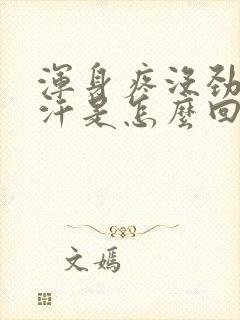 渾身疼沒勁
汗是怎麼回
文嫣